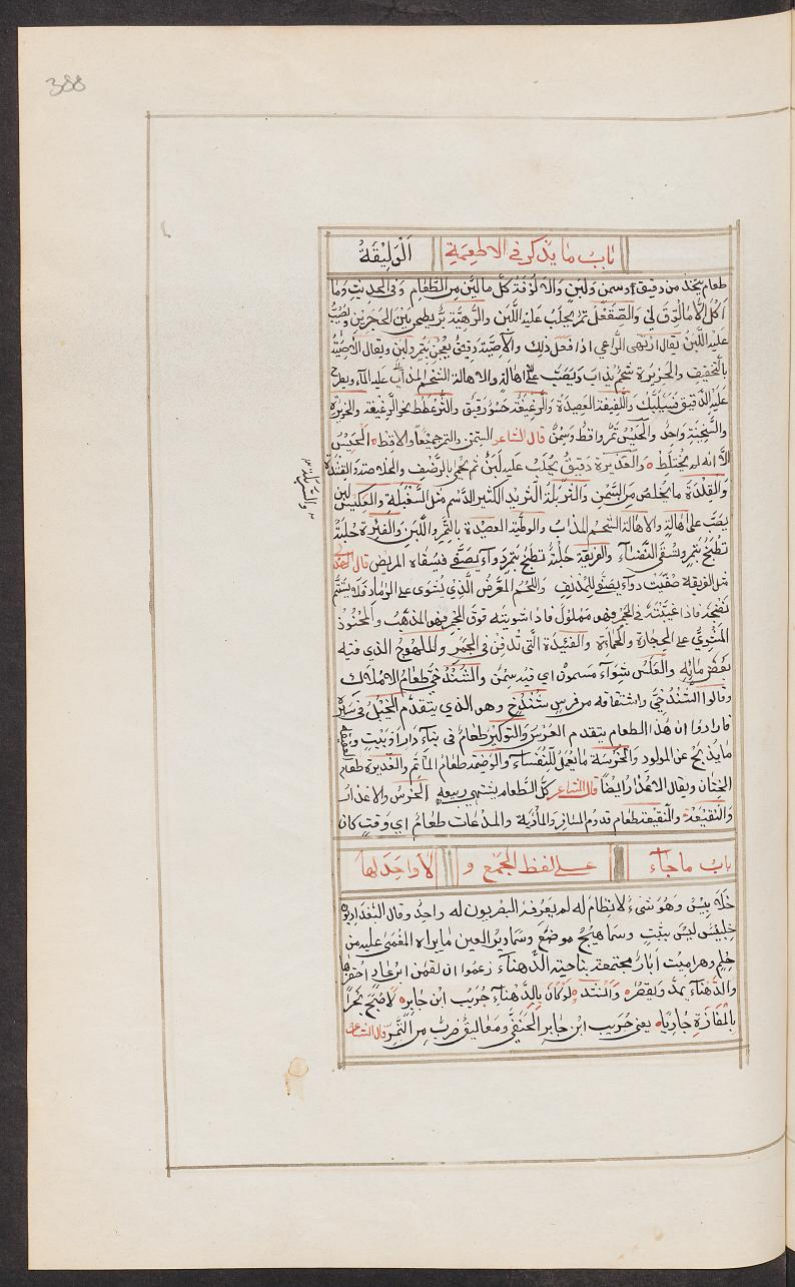 388
باب ما يذكر في الاطعمة الوليقة
طعام يتخذ من دقيق او سمن ولبن والالوقة كل ما لين من الطعام وفى الحديث وما
اكل الا ما لوق لي والصقعل تمر يحلب عليه اللبن والرهية بر يطحن بين الحجرين ويصب
عليه اللبن يقال ارتهى الراعي اذا فعل ذلك والآصية دقيق يعجن بتمر ولبن ويقال الاصية
بالتخفيف والخزيرة شحم يذاب ويصب على اهالة والاهالة الشحم المذاب عليه الماء ويطرح
عليه الدقيق فيتلبك واللفيتة العصيدة والرغيغة حسو رقيق والتر نحو الرغيغة والخزيرة
والسخينة واحد والحيس تمر واقط وسمن قال الشاعر التمر والسمن جميعا والاقط الحيس
الا انه لم يختلط والغذيرة دقيق يحلب عليه لبن ثم يحمى بالرضف والخلاصة والقشدة
والقلدة ما يخلص من السمن والثريد الكثير الدسم مثل السغبلة والعكيس لبن
والسربلة
يصب على اهالة والاهالة الشحم المذاب والوطية العصيدة بالتمر واللبن والفئرة حلبة
تطبخ بتمر وتسقى النفساء والفريقة حلبة تطبخ بتمر دواء يصفى فيسقاه المريض قال
مثل الفريقة صفيت دواء يصفى للمدنف واللحم المعرض الذي يشوى على الرماد فلا يستتم
نضجه فاذا غيبته في الجمر فهو مملول فاذا شويته فوق الجمر فهو والمحنوذ
المشوي على الحجارة والمحماة والفئيدة التي تدفن في الجمر والملهوج الذي فيه
بعض مائه والغلس شواء مسمون اي فيه سمن والشندخي طعام الاملاك
وقالوا الشندخي واشتقاقه من فرس شندخ وهو الذي يتقدم الخيل في سيره
فارادوا ان هذا الطعام يتقدم العرس والتوكير طعام في بناء دار او بيت والعقيقة
ما يذبح عن المولود والخرسة ما يعمل للنفساء والوضيمة طعام المأتم والغديرة طعام
الختان ويقال الاعذار ايضا قال الشاعر كل الطعام يشتهى ربيعه الخرس والاعذار
والنقيعة والنقيعة طعام قدوم المسافر والمأدبة والمدعاة طعام اي وقت كان
باب ما جاء على لفظ الجمع و لا واحد لها
خلابيس وهو شيء لا نظام له لم يعرف البصريون له واحد وقال البغداديون
خلبيس ليس بثبت وسماهيج موضع وسمادير العين ما يراه المغمى عليه من
حلم وهراميت آبار مجتمعة بناحية الدهناء زعموا ان لقمن ابن عاد احتفرها
والدهناء يمد ويقصر وانشد لو كان بالدهناء حريب ابن جابر لاصبح بحرا
بالمفازة جاريا يعني حريب ابن جابر الحنفي ومعاليق ضرب من التمر قال الشاعر